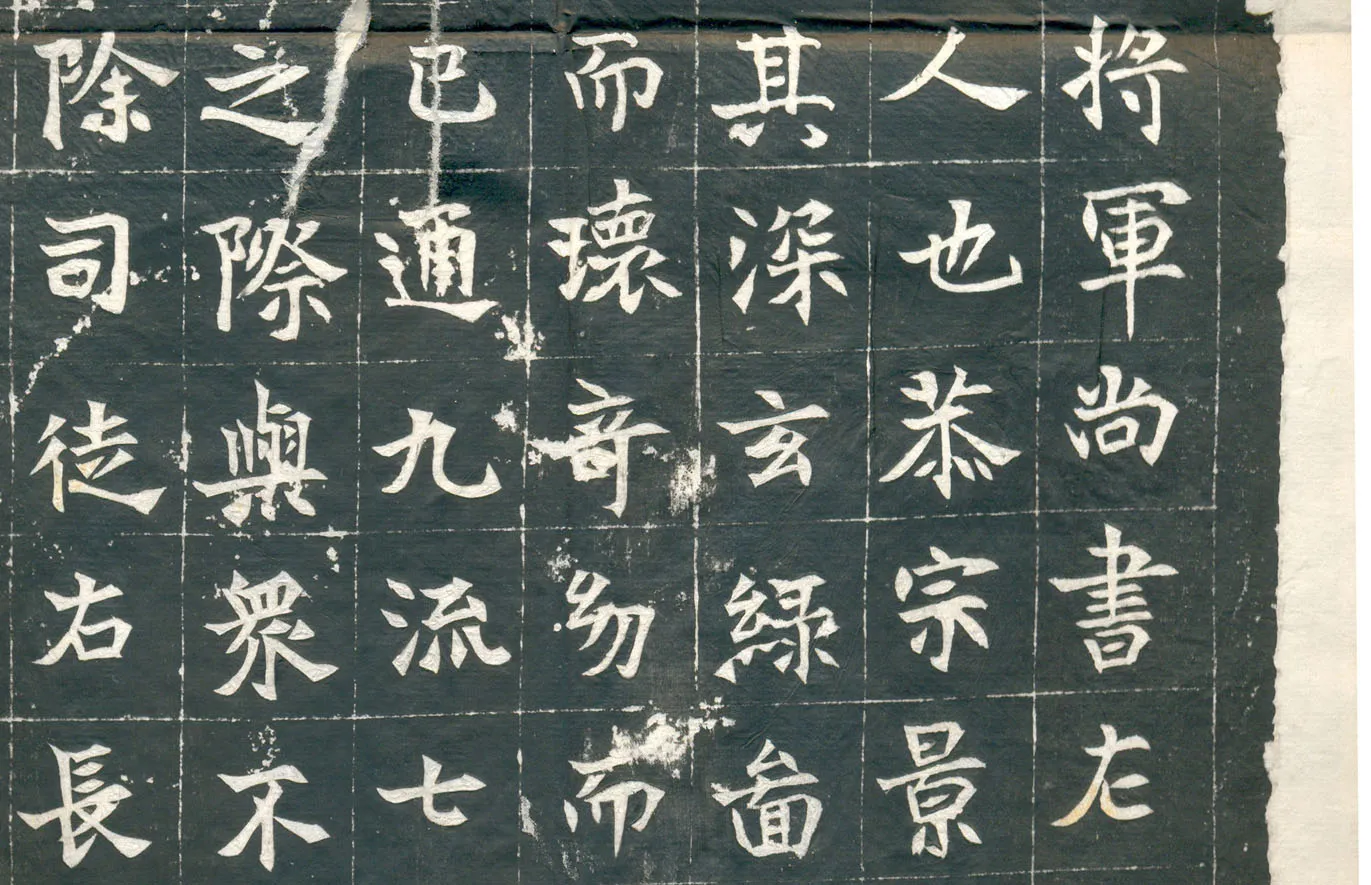 將軍尚書左
人也恭宗景
其深玄綠圖
而瓌竒幼而
已通九流七
之際與眾不
除司徒右長